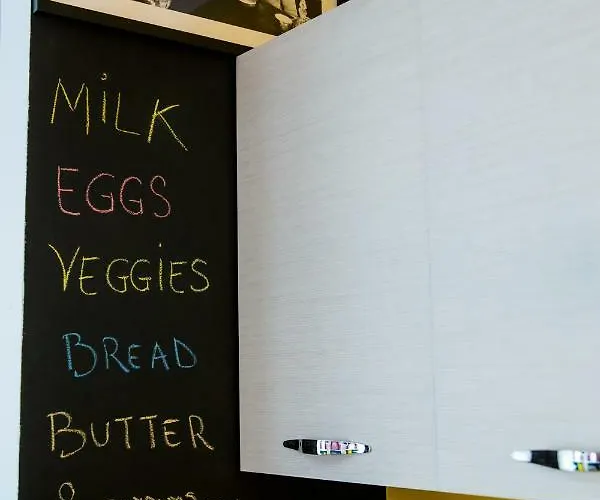 MiLK
EGGS
VEGGiES
BREAD
BUTTER